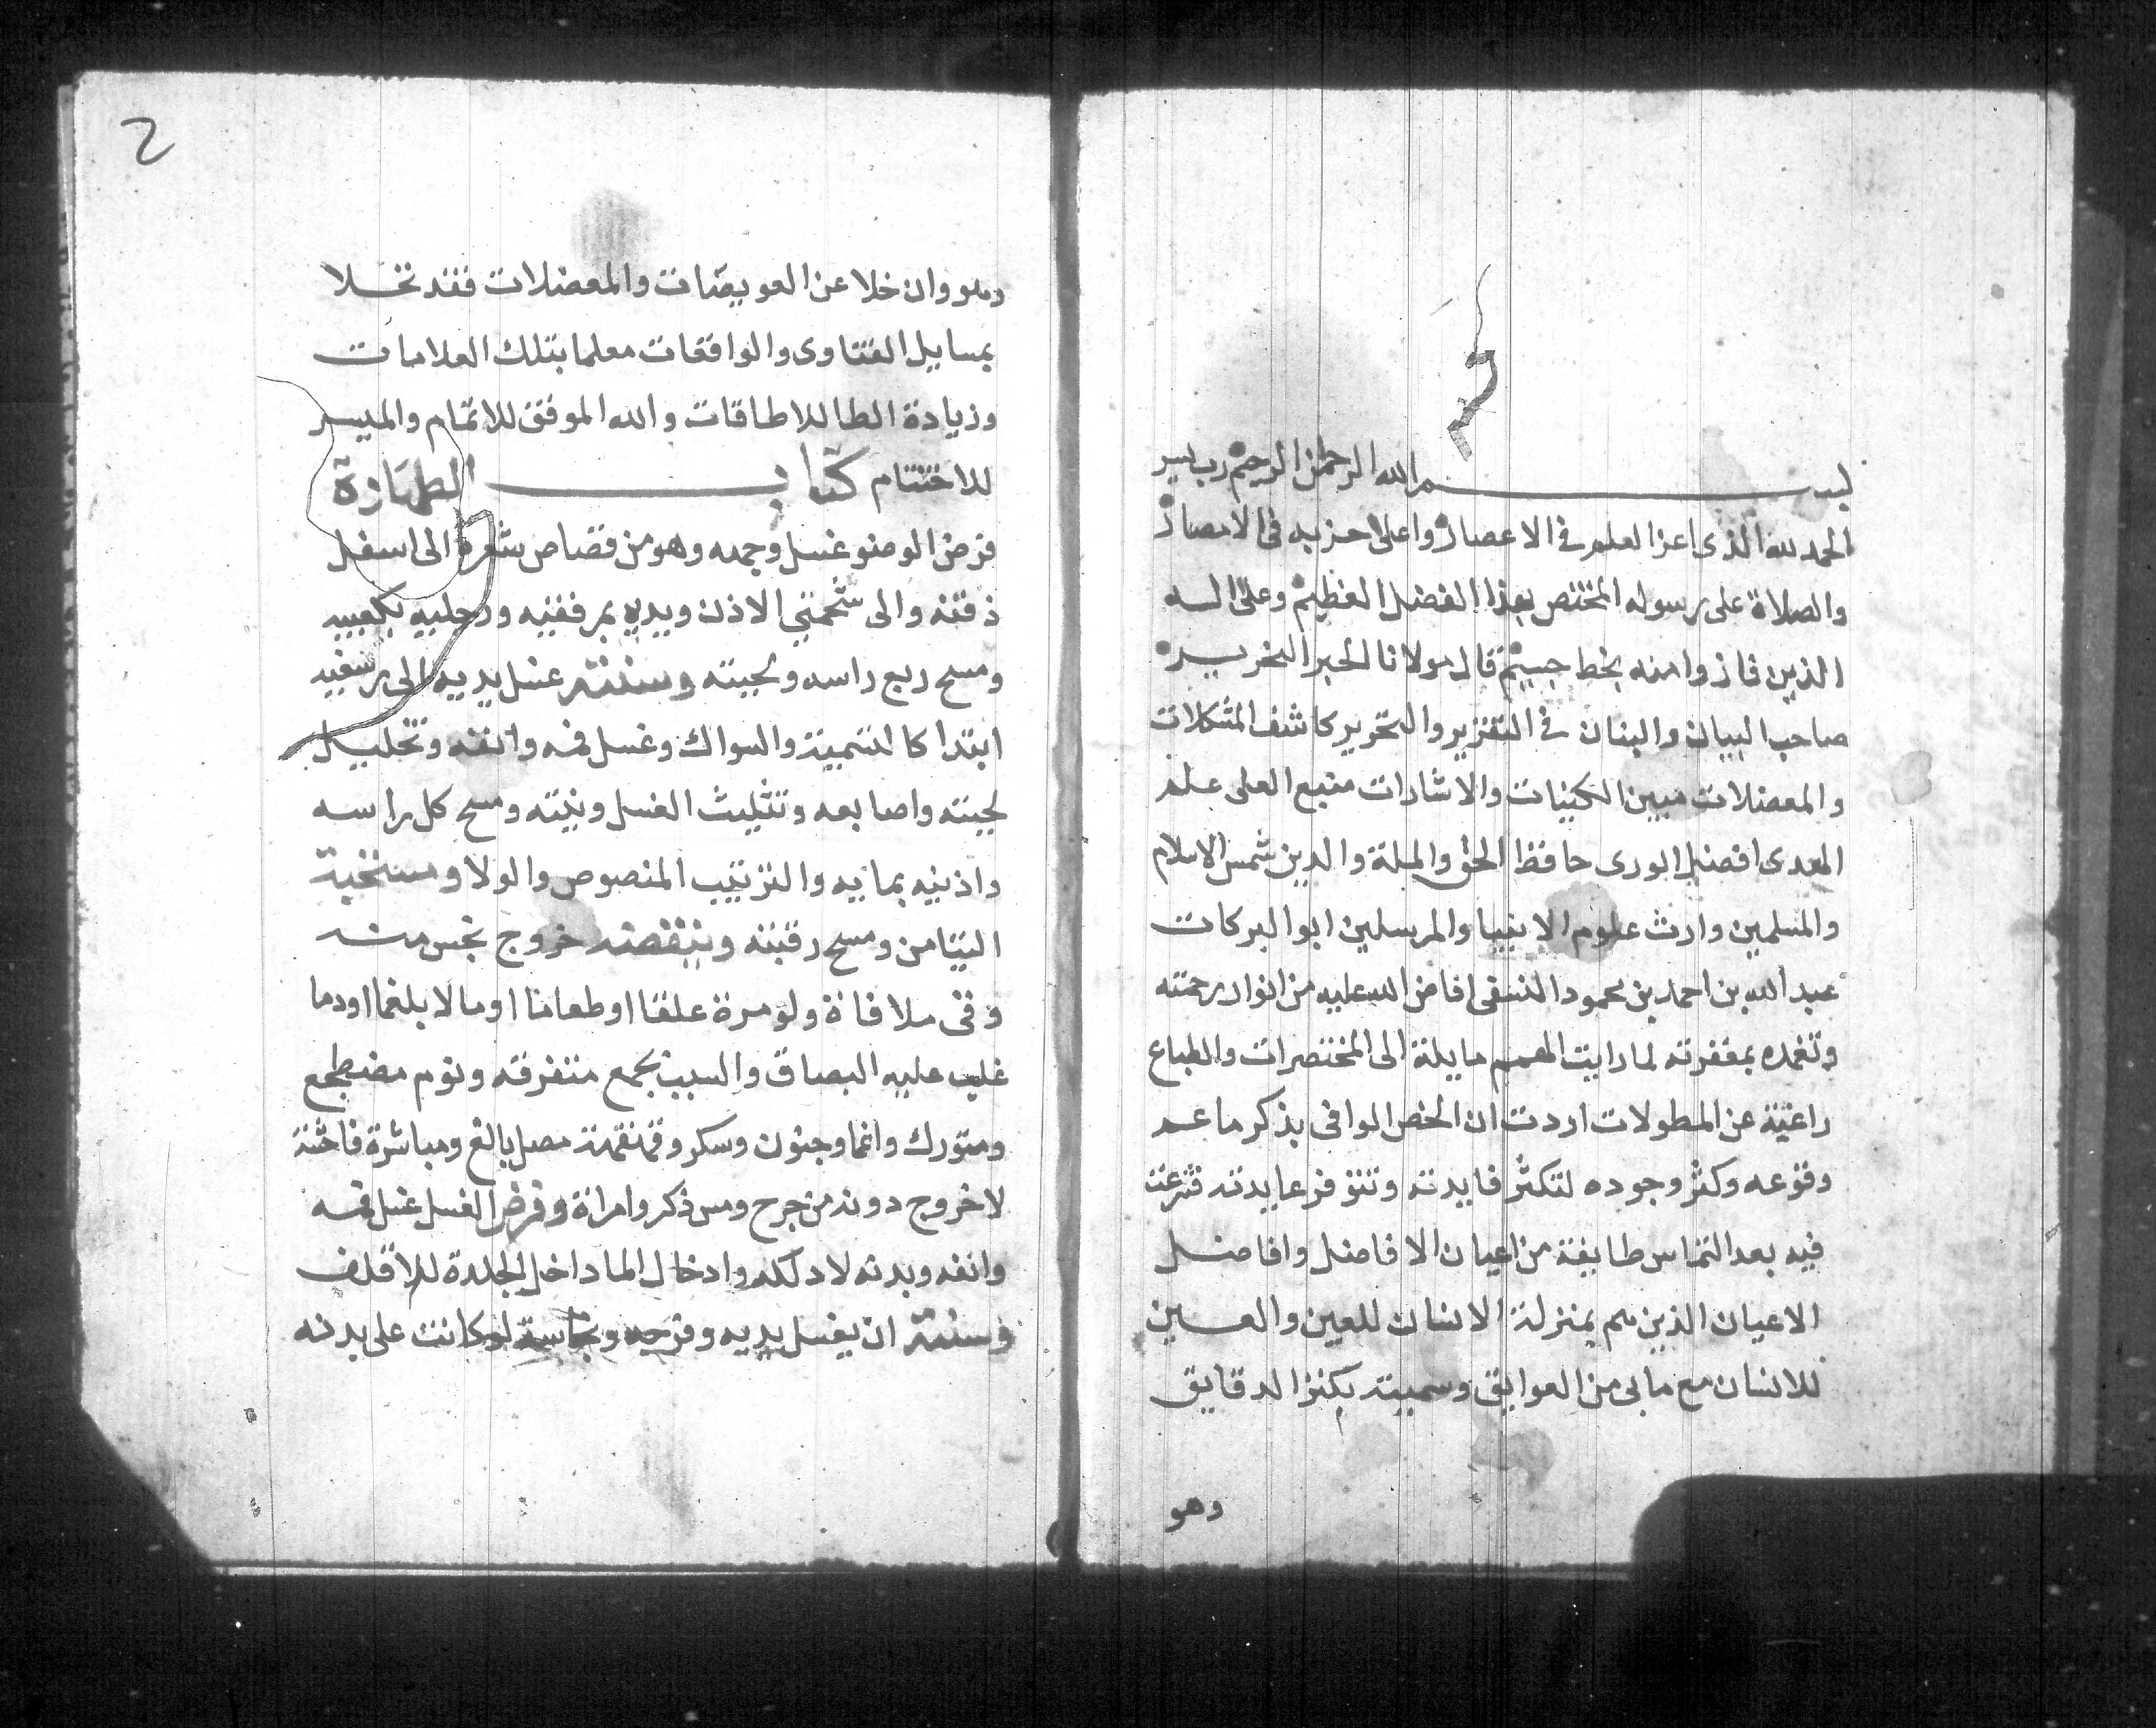 بسم الله الرحمن الرحيم رب يسر
الحمد لله الذى اعز العلم فى الاعصار واعلى حزبه فى الامصار
والصلاة على رسوله المختص بهذا الفضل العظيم وعلى اله
الذين فازوا منه بخط جسيم قال مولانا الحبر النحرير
صاحب البيان والبنان فى التقرير والتحرير كاشف المشكلات
والمعضلات مبين الكنيات والاشارات منبع العلى علم
الهدى افضل الورى حافظ الحق والملة والدين شمس الاسلام
والمسلمين وارث علوم الانبيا والمرسلين ابو البركات
عبد الله بن احمد بن محمود النسفى افاض الله عليه من انوار رحمته
وتغمده بمغفرته لما رايت الهمم مايلة الى المختصرات والطباع
راغبة عن المطولات اردت ان الخص الوافى بذكر ما عم
وقوعه وكثر وجوده لتكثر فايدته وتتوفر عايدته فشرعت
فيه بعد التماس طايفة من اعيان الافاضل وافاضل
الاعيان الذين هم بمنزلة الانسان للعين والعين
للانسان مع مابى من العوايق وسميته بكنز الدقايق
وهو
2
وهو وان خلا عن العويصات والمعضلات فقد تحلا
بمسايل الفتاوى والواقعات معلما بتلك العلامات
وزيادة الطا للاطاقات والله الموفق للاتمام والميسر
للاختتام كتاب الطهارة
فرض الوضو غسل وجهه وهو من قصاص شعره الى اسفل
ذقنه والى شحمتي الاذن ويديه بمرفقيه ورجليه بكعبيه
ومسح ربع راسه ولحيته وسنته غسل يديه الى رسغيه
ابتدا كالتسمية والسواك وغسل فمه وانفه وتخليل
لحيته واصابعه وتثليث الغسل ونيته ومسح كل راسه
واذنيه بمايه والترتيب المنصوص والولا ومستحبة
التيامن ومسح رقبته وينقضه خروج نجس منه
وقى ملا فاة ولو مرة علقا او طعاما او ما لا بلغما او دما
غلب عليه البصاق والسبب يجمع متفرقه ونوم مضطجع
ومتورك واغما وجنون وسكر وقهقهة مصل بالغ ومباشرة فاحشة
لا خروج دودة من جرح ومس ذكر وامراة وفرض الغسل غسل فمه
وانفه وبدنه لا دلكه وادخال الما داخل الجلدة للاقلف
وسنته ان يغسل يديه وفرجه ونجاسة لو كانت على بدنه